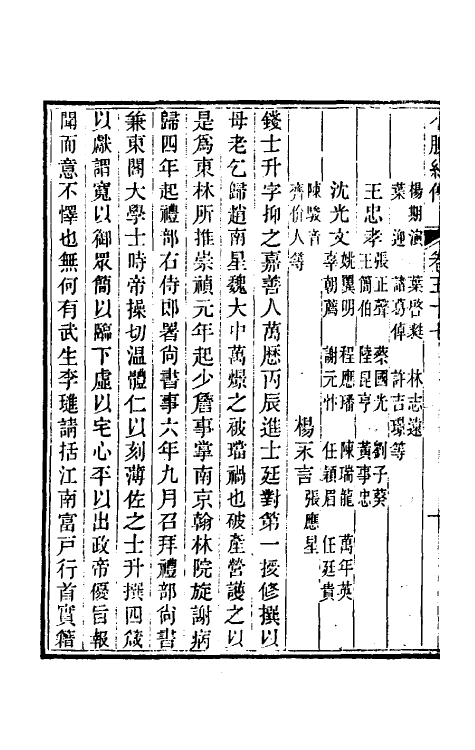 小腆紀傳 卷五十七
楊期演 葉啓 林志遠
葉迎 諸葛倬 許吉璟等
王忠孝 張正聲 蔡國光 劉子葵
王簡伯 陸昆亨 黃事忠
沈光文 姚翼明 程應璠 陳瑞龍 萬年英
辜朝薦 謝元忭 任穎眉 任廷貴
陳駿音
齊价人等 楊永言 張應星
錢士升字抑之嘉善人萬歷丙辰進士廷對第一授修撰以
母老乞歸趙南星魏大中萬燝之破璫禍也破產營護之以
是爲東林所推崇禎元年起少詹事掌南京翰林院旋謝病
歸四年起禮部右侍郎署尚書事六年九月召拜禮部尚書
兼東閣大學士時帝操切溫體仁以刻薄佐之士升撰四箴
以獻謂寬以御眾簡以臨下虛以宅心平以出政帝優旨報
聞而意不懌也無何有武生李璡請括江南富戸行首實籍